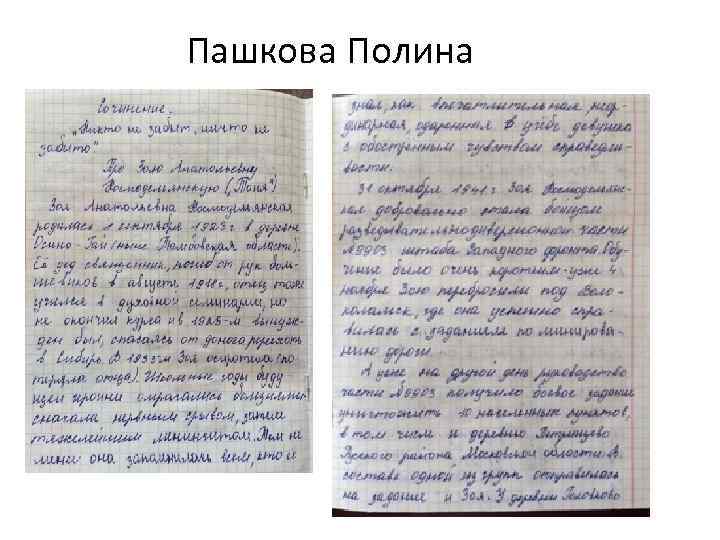 Пашкова Полина
Сочинение.
"Никто не забыт, ничто не
забыто"
Про Зою Анатольевну
Космодемьянскую ("Таня")
Зоя Анатольевна Космодемьянская
родилась 1 сентября 1923 г в деревне
Осино-Гай (ныне Тамбовская область).
Её дед священник, погиб от рук боль-
шевиков в августе 1918г, отец тоже
учился в духовной семинарии, но
не окончил курса и в 1929-м вынуж-
ден был, спасаясь от доноса, уехать
в Сибирь. В 1933м Зоя осиротела (по-
теряла отца). Школьные годы буду-
щей героини омрачались
сначала нервным срывом, затем
тяжелейшим менингитом. Тем не
менее она запомнилась всем, кто её
знал, как впечатлительная, неор-
динарная, одаренная в учебе девушка
с обостренным чувством справедли-
вости.
31 октября 1941 г Зоя Космодемьян-
ская добровольно стала бойцом
разведывательнодиверсионной части
№9903 штаба Западного фронта. Обу-
чение было очень коротким-уже 4
ноября Зою перебросили под Воло-
коламск, где она успешно спра-
вилась с заданием по минирова-
нию дороги.
А уже на другой день руководство
части №9903 получило боевое задание
уничтожить 10 населенных пунктов,
в том числе и деревню Петрищево
Рузского района Московской области. В
составе одной из групп отправилась
на задание и Зоя. У деревни Головково